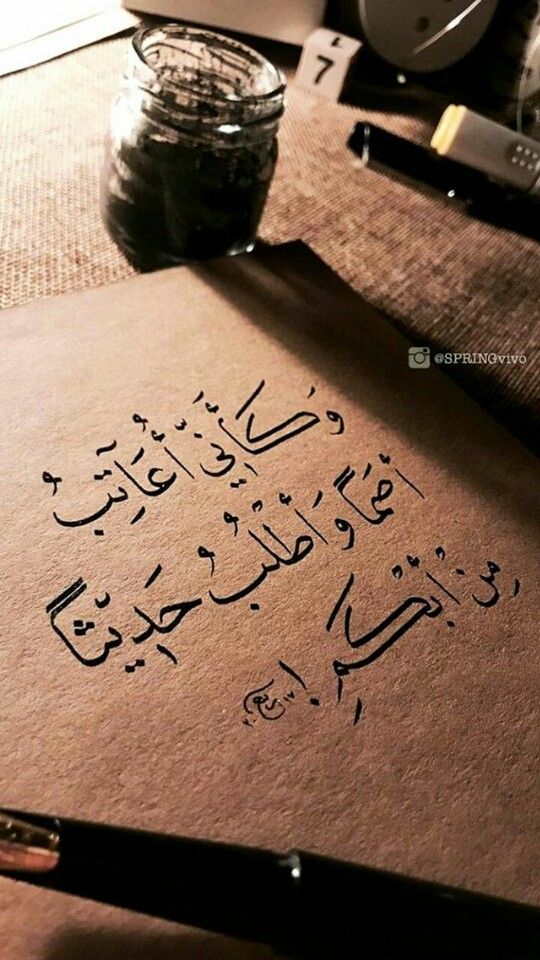 7
@SPRINGvivo
وَكَأَنِّي أُعَاتِبُ
أصمًا وَأَطْلُبُ حَدِيثًا
مِنْ أبْكَمِ !